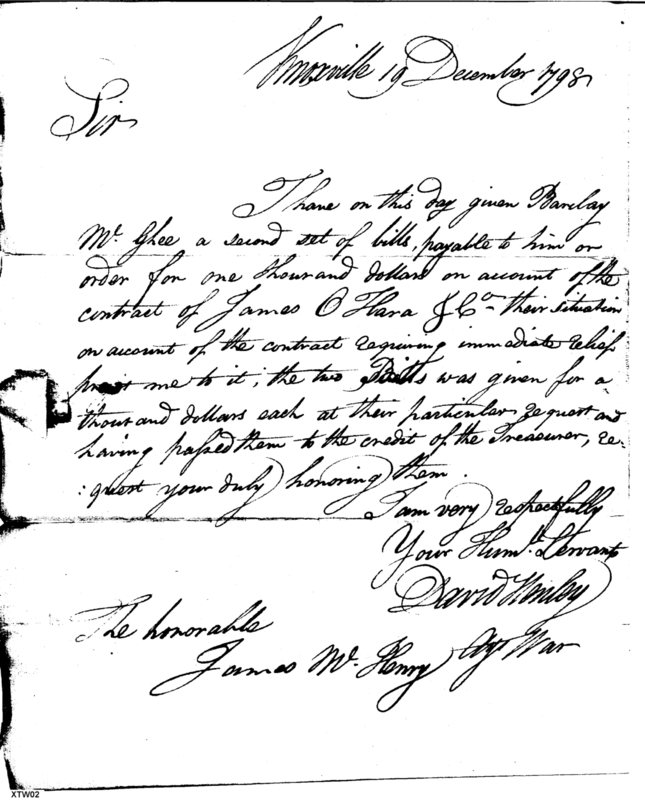 Knoxville 19 December 1798
Sir
I have on this day given Barclay
Mc. Ghee a second set of bills, payable to him or
order for one thousand dollars on account of the
contract of James O Hara & Co. their situation
on account of the contract requiring immediate relief
me to it; the two Bills was given for a
thousand dollars each at their particular request and
having passed them to the credit of the Treasurer, re-
:quest your duly honoring them.
I am very respectfully
Your Humb. Servant
David Henley
The honorable
James Mc. Henry Agt War
XTW02